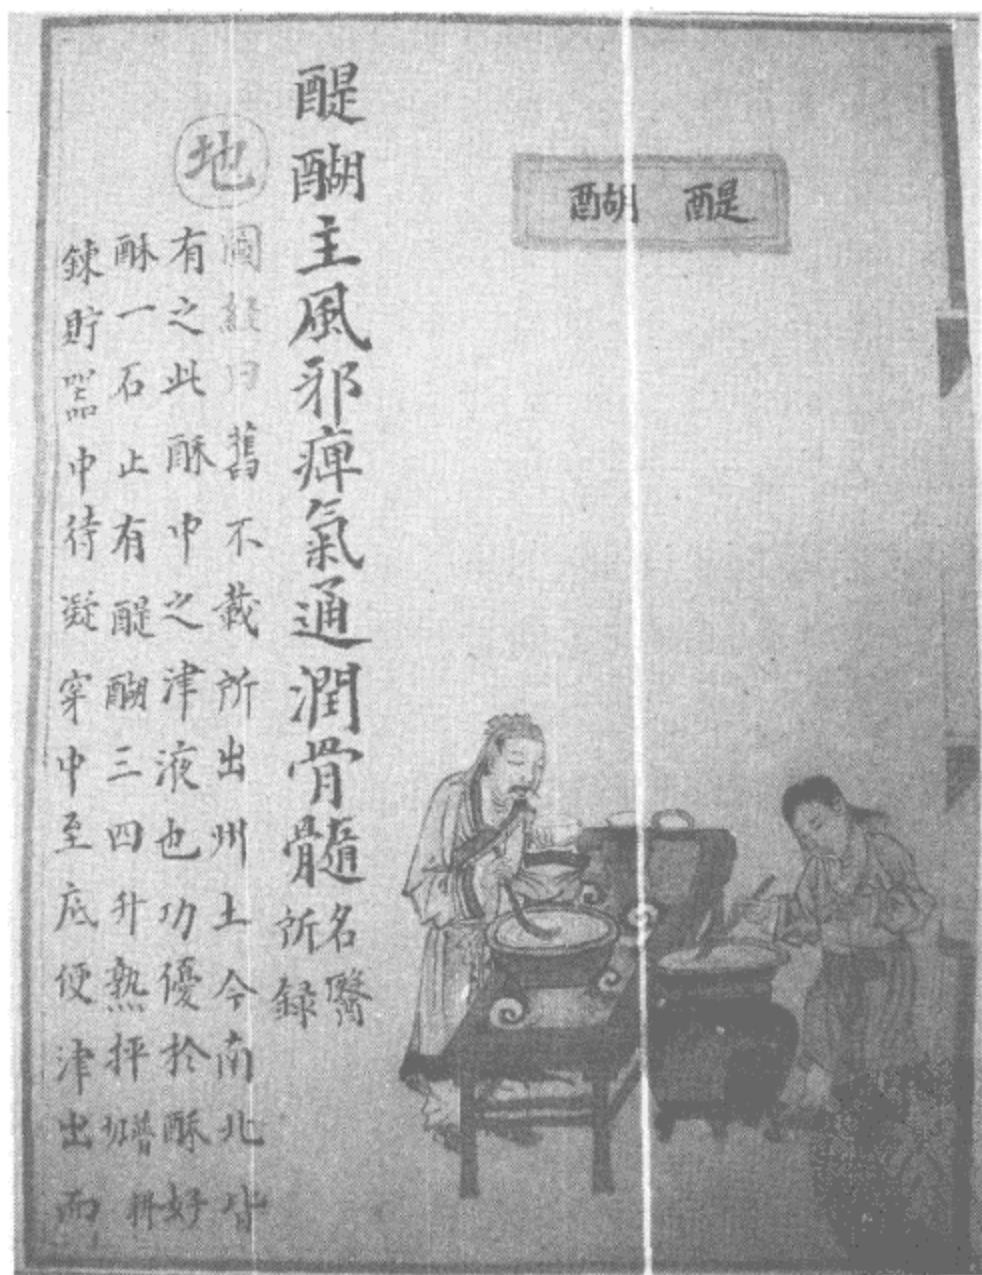 醍醐
醍醐主風邪痺氣通潤骨髓名醫
所録
地
圖經曰舊不載所出州土今南北皆
有之此酥中之津液也功優於酥好
酥一石止有醍醐三四升熟抨
鍊貯器中待凝穿中至底便津出而